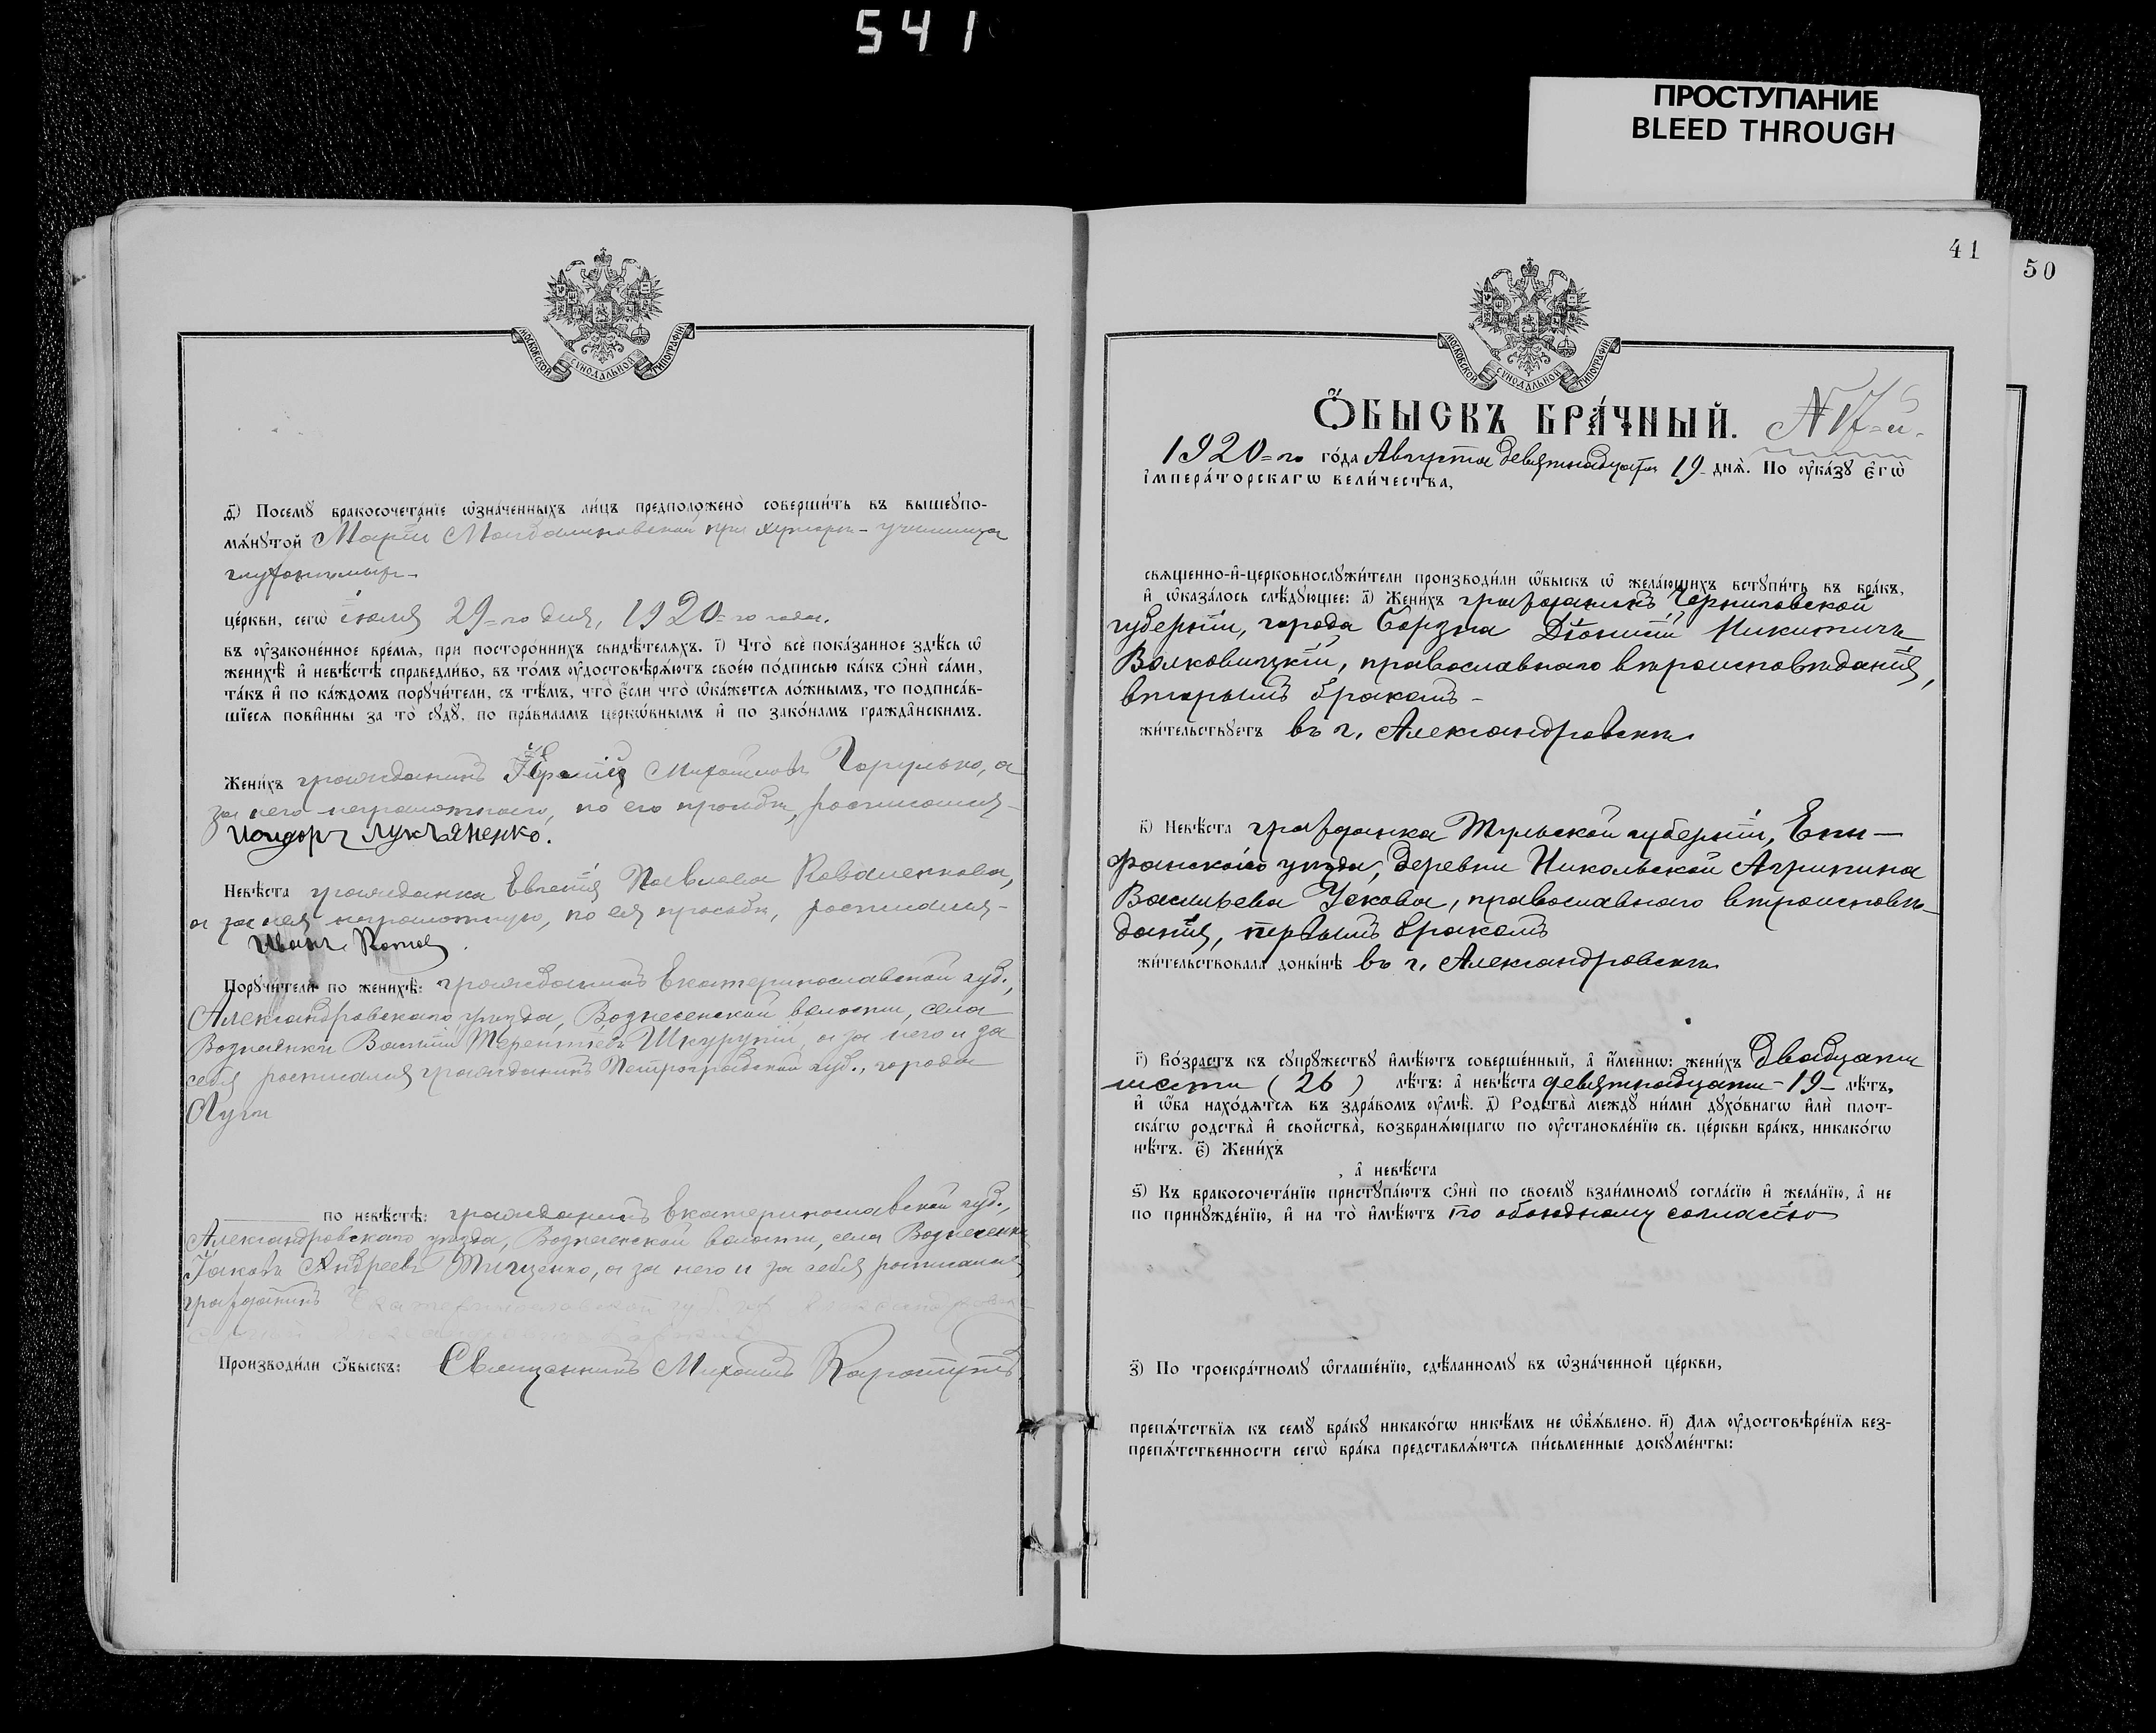 541
ПРОСТУПАНИЕ
BLEED THROUGH
41
50
МОСКОВСКОЙ СѴНОДАЛЬНОЙ ТИПОГРАФІИ
ѳ҃) Посемꙋ̀ бракосочета́нїе ѡ҆зна́ченныхъ ли́цъ предположено̀ соверши́ть въ вышеꙋпо-
мѧ́нꙋтой Маріи Магдалиновской при хуторѣ-училища
глухонѣмыхъ-
це́ркви, сегѡ̀ іюля 29=го дня, 1920=го года.
въ ᲂу҆зако́ненное вре́мѧ, при посторо́ннихъ свидѣ́телѧхъ. і҃) Что̀ всѐ пока́занное здѣ́сь ѡ҆
женихѣ̀ и҆ невѣ́стѣ справедли́во, въ то́мъ ᲂу҆достовѣрѧ́ютъ свое́ю по́дписью ка́къ ѻ҆нѝ са́ми,
та́къ и҆ по ка́ждомъ порꙋчи́тели, съ тѣ́мъ, что̀ є҆́сли что̀ ѡ҆ка́жетсѧ ло́жнымъ, то подписа́в-
шїесѧ пови́нны за то̀ сꙋдꙋ̀, по пра́виламъ церко́внымъ и҆ по зако́намъ гражда́нскимъ.
Жени́хъ гражданинъ Михайловъ Горулько, а
за него неграмотнаго, по его просьбѣ, росписался-
Исидоръ Лукъяненко.
Невѣ́ста гражданка Евгенія Павлова Коваленкова,
а за нея неграмотную, по ея просьбѣ, росписался-
Иванъ Котов
Порꙋчи́тели по женихѣ̀: гражданинъ Екатеринославской губ.,
Александровскаго уѣзда, Вознесенской волости, села
Вознесенки Василій Терентіевъ Шкурупій, а за него и за
себя росписался гражданинъ Петроградской губ., города
Луги
по невѣ́стѣ: гражданинъ Екатеринославской губ.,
Александровскаго уѣзда, Вознесенской волости, села Вознесенки
Іаковъ Андреевъ Тищенко, а за него и за себя росписался
гражданинъ
Производи́ли ѻ҆́быскъ: Священникъ Михаилъ
МОСКОВСКОЙ СѴНОДАЛЬНОЙ ТИПОГРАФІИ
Ѻ҆́БЫСКЪ БРА́ЧНЫЙ. N 17=й.
1920=го го́да Августа девятнадцатаго 19- днѧ̀. По ᲂу҆ка́зꙋ є҆гѡ̀
і҆мпера́торскагѡ вели́чества,
свѧще́нно-и҆-церковнослꙋжи́тели производи́ли ѻ҆́быскъ ѡ҆ жела́ющихъ встꙋпи́ть въ бра́къ,
и҆ ѡ҆каза́лось слѣ́дꙋющее: а҃) Жени́хъ гражданинъ Черниговской
губерніи, города Борзна Діонисій Никитичъ
Волковицкій, православнаго вѣроисповѣданія,
вторымъ бракомъ-
жи́тельствꙋетъ въ г. Александровскѣ
в҃) Невѣ́ста гражданка Тульской губерніи, Епи-
фанскаго уѣзда, деревни Никольской Агрипина
Васильева Ускова, православнаго вѣроисповѣ-
данія, первымъ бракомъ
жи́тельствовала доны́нѣ въ г. Александровскѣ
г҃) Во́зрастъ къ сꙋпрꙋ́жествꙋ и҆мѣ́ютъ соверше́нный, а҆ и҆́меннѡ: жени́хъ Двадцати
шести (26) лѣ́тъ: а҆ невѣ́ста девятнадцати-19- лѣ́тъ,
и҆ ѻ҆́ба нахо́дѧтсѧ въ здра́вомъ ᲂу҆мѣ̀. д҃) Родства̀ междꙋ̀ ни́ми дꙋхо́внагѡ и҆лѝ плот-
ска́гѡ родства̀ и҆ свойства̀, возбранѧ́ющагѡ по ᲂу҆становле́нїю св. це́ркви бра́къ, никако́гѡ
нѣ́тъ. є҃) Жени́хъ
, а҆ невѣ́ста
ѕ҃) Къ бракосочета́нїю пристꙋпа́ютъ ѻ҆нѝ по своемꙋ̀ взаи́мномꙋ согла́сїю и҆ жела́нїю, а҆ не
по принꙋжде́нїю, и҆ на то̀ и҆мѣ́ютъ по обоюдному согласію
з҃) По троекра́тномꙋ ѡ҆глаше́нїю, сдѣ́ланномꙋ въ ѡ҆зна́ченной це́ркви,
препѧ́тствїѧ къ семꙋ̀ бра́кꙋ никако́гѡ никѣ́мъ не ѡ҆б̾ѧ́влено. и҃) Длѧ ᲂу҆достовѣре́нїѧ без-
препѧ́тственности сегѡ̀ бра́ка представлѧ́ютсѧ пи́сьменные докꙋме́нты: